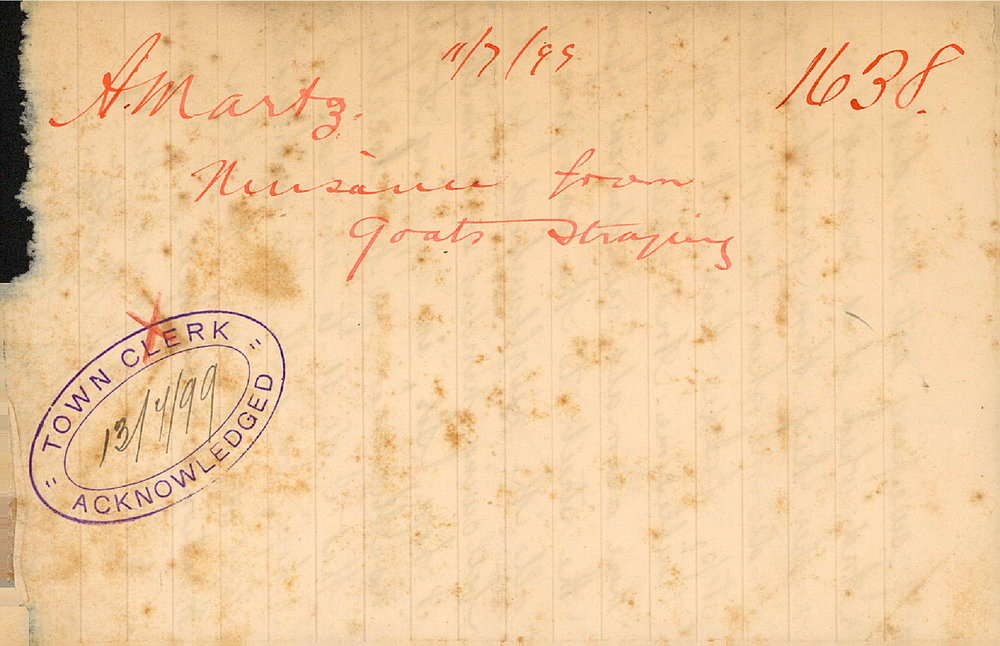 11/7/99
A. Martz. 1638.
Nuisance from
Goats straying
" TOWN CLERK "
13/7/99
ACKNOWLEDGED